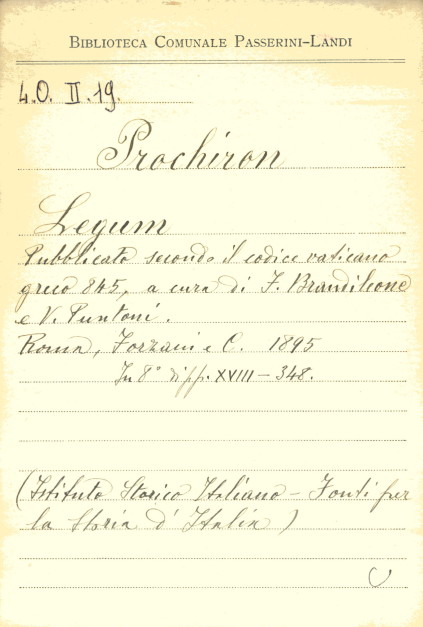 BIBLIOTECA COMUNALE PASSERINI-LANDI
4.O. II. 19.
Prochiron
Legum
Pubblicato secondo il codice vaticano
greco 845, a cura di F. Brandileone
e V. Puntoni.
Roma, Forzani e C. 1895
In 8° di pp. XVIII - 348.
(Istituto Storico Italiano - Fonti per
la Storia d'Italia)